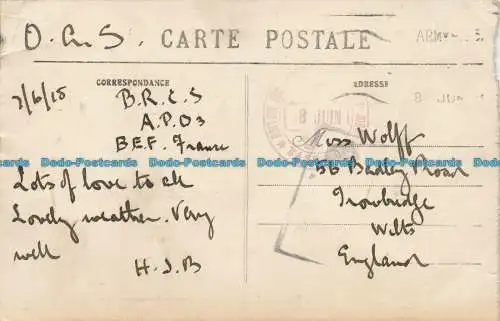 O.A.S.
CARTE POSTALE
CORRESPONDANCE
ADRESSE
7/6/15
B.R.C.S
A.P.O 3
B.E.F. France
8 JUIN
8 JU
Miss Wolff
56 Bradley Road
Trowbridge
Wilts
England
Lots of love to all
Lovely weather. Very
well
H.J.B
Dodo-Postcards Dodo-Postcards Dodo-Postcards Dodo-Postcards